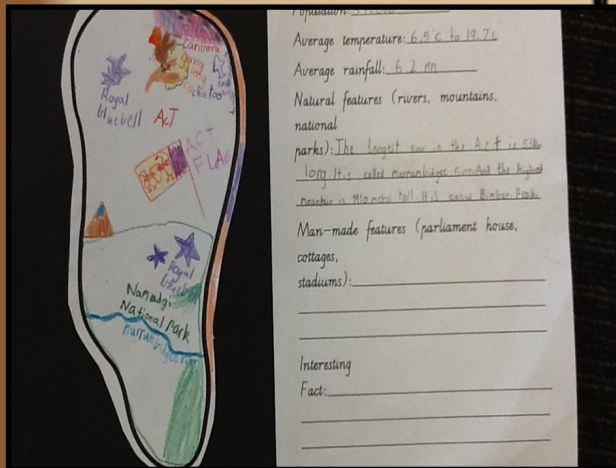 Canberra
gang
gang
cockatoo
Royal
bluebell
ACT
ACT
FLAG
Royal
bluebell
Namadgi
National Park
murrumbidgee river
Population:
Average temperature: 6.5°c to 19.7c
Average rainfall: 62 mm
Natural features (rivers, mountains,
national
parks): The longest river in the Act is
long. It is called murrumbidgee river. And the highest
mountain is 1910 metres tall. It is called Bimberi Peak.
Man-made features (parliament house,
cottages,
stadiums):
Interesting
Fact: